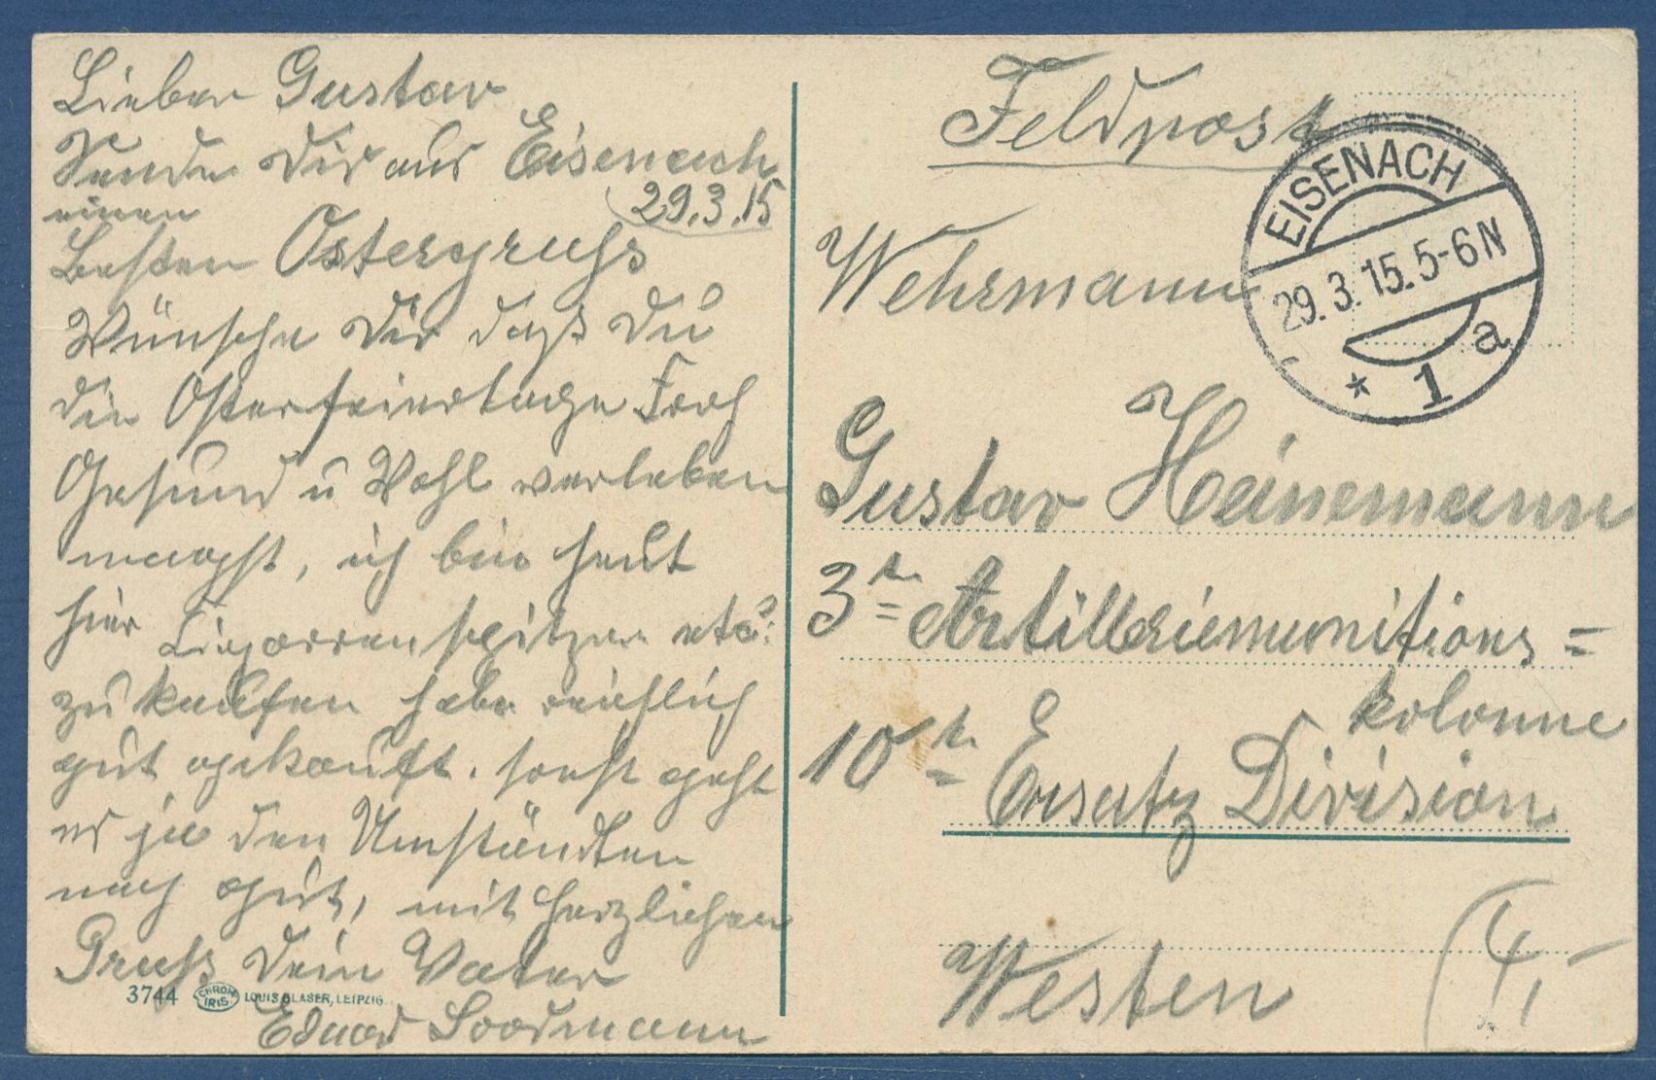 Lieber Gustav
Sende Dir aus Eisenach
29.3.15
einen
besten Ostergruss
Wünsche Dir dass Du
die Osterfeiertage Froh
Gesund u Wohl verleben
magst, ich bin heut
hier Cigarrenspitzen etc:
zu kaufen habe reichlich
gut gekauft. sonst geht
es ja den Umständten
nach gut, mit herzlichen
Gruss Dein Vater
Eduard
3744 CHROM IRIS LOUIS GLASER, LEIPZIG
Feldpost
EISENACH
29.3.15.5-6N
* 1 a
Wehrmann
Gustav Heinemann
3te Artilleriemunitions=
kolonne
10te Ersatz Division
Westen